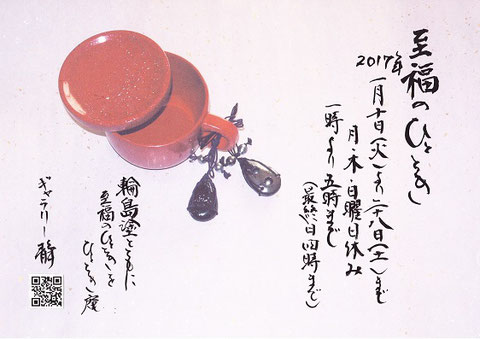 至福のひととき
2017年
一月十日(火)より二十八日(土)まで
月・木・日曜日休み
一時より五時まで
(最終日四時まで)
輪島塗とともに
至福のひとときを
ひととき庵
ギャラリー